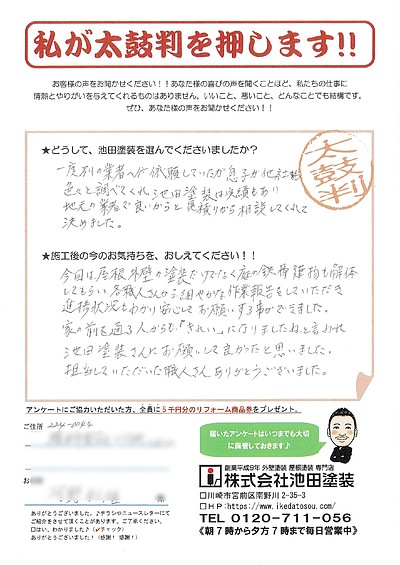 私が太鼓判を押します!!
お客様の声をお聞かせください！！あなた様の喜びの声を聞くことほど、私たちの仕事に
情熱とやりがいを与えてくれるものはありません。いいこと、悪いこと、どんなことでも結構です。
ぜひ、あなた様の声をお聞かせください！！
太鼓判
★どうして、池田塗装を選んでくださいましたか?
一度別の業者へ依頼していたが息子が他社も
色々と調べてくれ、池田塗装は実績もあり
地元の業者で良いからと見積りから相談してくれて
決めました。
★施工後の今のお気持ちを、おしえてください！！
今回は屋根外壁の塗装だけでなく庭の鉄骨建物も解体
してもらい各職人さんから細やかな作業報告をしていただき
進捗状況もわかり安心してお願いする事ができました。
家の前を通る人からも「きれい」になりましたねと言われ
池田塗装さんにお願いして良かったと思いました。
担当していただいた職人さんありがとうございました。
アンケートにご協力いただいた方、全員に5千円分のリフォーム商品券をプレゼント。
ご住所
届いたアンケートはいつまでも大切
に保管しておきます♪
お
様
創業平成9年 外壁塗装 屋根塗装 専門店
株式会社池田塗装
川崎市宮前区南野川 2-35-3
HP:https://www.ikedatosou.com/
TEL 0120-711-056
《朝7時から夕方7時まで毎日営業中》
ありがとうございました♪チラシやニュースレターにて
ご紹介をさせて頂くことがあります。ご了承ください。
□はい、わかりました♪（✓チェック）
ありがとうございました！（感謝！感謝！）